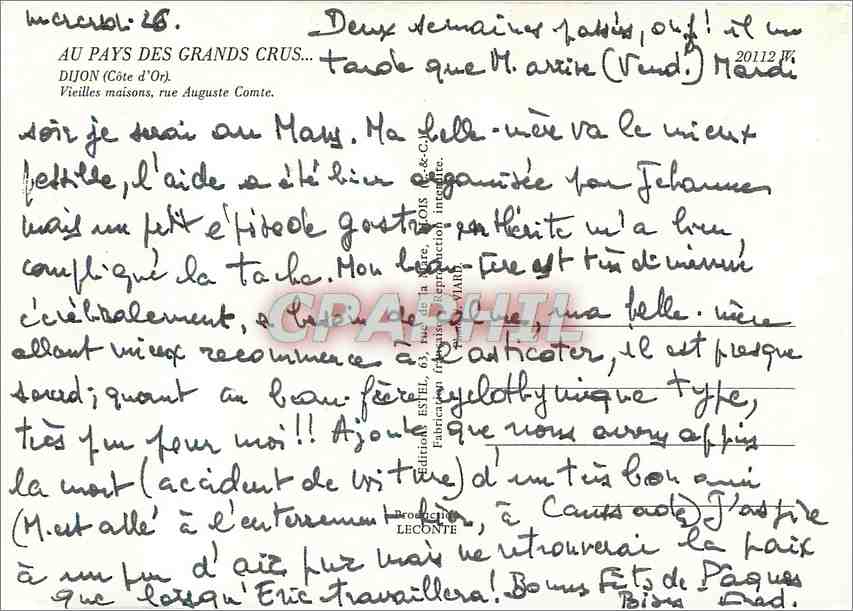 mercredi 26.
Deux semaines passées, ouf! il me
tarde que M. arrive (Vend.) Mardi
AU PAYS DES GRANDS CRUS...
20112 W.
DIJON (Côte d'Or).
Vieilles maisons, rue Auguste Comte.
soir je serai au Mans. Ma belle-mère va le mieux
possible, l'aide a été bien organisée par Johannes
mais un petit épisode gastro-entérite m'a bien
compliqué la tache. Mon beau-père est très diminué
cérébralement, a besoin de calme, ma belle-mère
allant mieux recommence à l'asticoter, il est presque
sourd; quant au beau-frère cyclothymique type,
très peu pour moi!! Ajoute que nous avons appris
la mort (accident de voiture) d'un très bon ami
(M. est allé à l'enterrement hier, à Caussade) J'aspire
à un peu d'air pur mais ne retrouverai la paix
que lorsqu'Eric travaillera! Bonnes Fêtes de Pâques
Bises
Editions ESTEL, 63, rue de la Mare, BLOIS
Fabrication française. Reproduction interdite.
VIARD.
Production
LECONTE
CPARPHIL